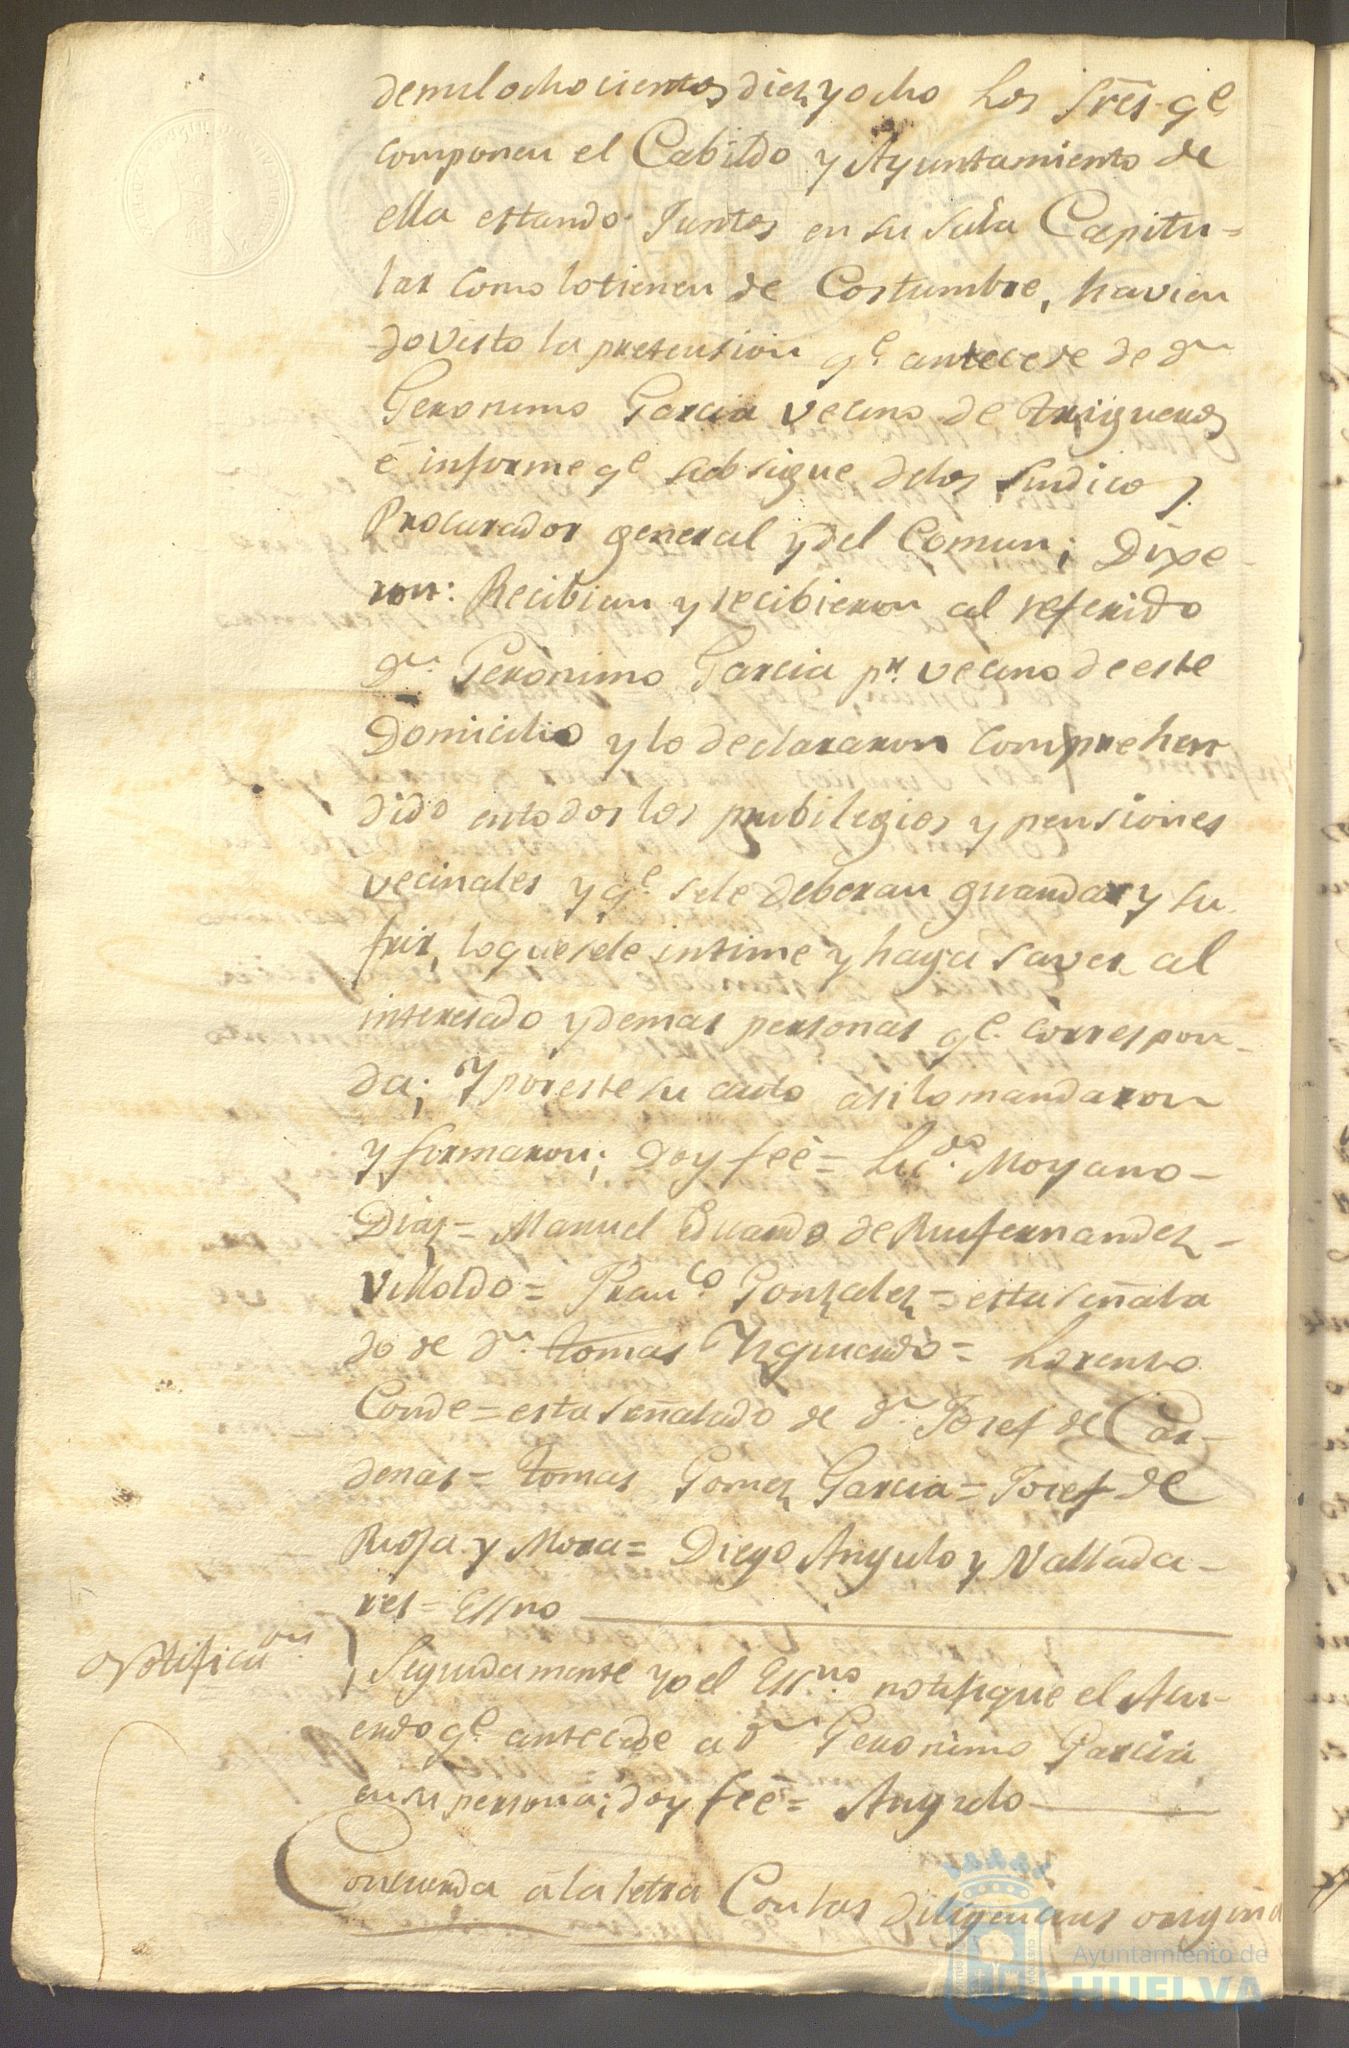 demil ochocientos diez y ocho los Sres. qe.
componen el Cabildo y Ayuntamiento de
ella estando Juntos en su sala Capitu=
lar como lo tienen de Costumbre, havien
do visto la pretension qe. antecede de Dn
Geronimo Garcia vecino de trigueros
é informe qe subsigue delos sindicos,
Procurador general y del Comun; Dixe-
ron: Recibian y recibieron al referido
Dn. Geronimo Garcia pr. vecino de este
Domicilio y lo declararon comprehen
dido entodos los pribilegios y pensiones
vecinales y qe. sele deberan guardar y su-
frir, lo que sele intime y haga saver al
interesado y demas personas qe. correspon-
da; Y por este su auto asi lo mandaron
y firmaron; doy feé= Licdo. Moyano-
Diaz= Manuel Eduardo de Rusfernandez-
Villoldo= Franco. Gonzalez= esta señala
do de Dn. tomas Yzquierdo= Lorenso
Conde= esta señalado de Dn. Josef de Car-
denas= tomas Gomez Garcia= Josef de
Rioja y Mora= Diego Angulo y Vallada-
res= Essno
Notificaon. } Seguidamente yo el Essno. notifique el Acu-
erdo qe. antecede a Dn Geronimo Garcia
en su persona; doy feé= Angulo
Concuerda á la letra Con las diligencias origina
Ayuntamiento de
HUELVA